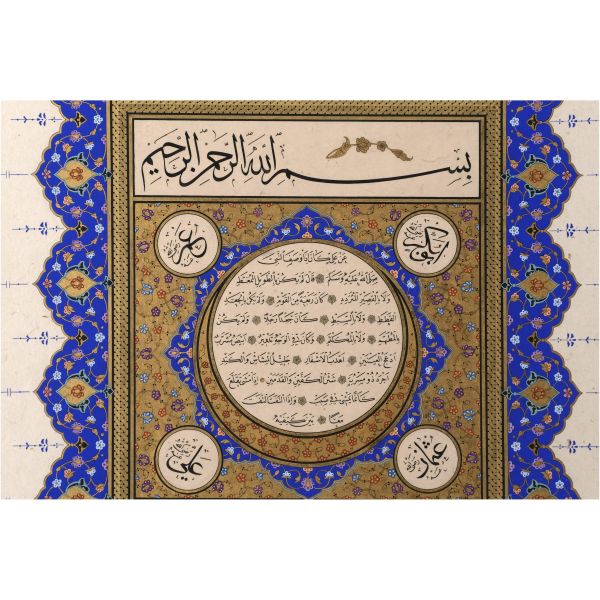 بسم الله الرحمن الرحيم
ابوبكر
عمر
عن علي كان اذا وصف النبي
صلى الله عليه وسلم قال لم يكن بالطويل الممغط
ولا بالقصير المتردد كان ربعة من القوم ولم يكن بالجعد
القطط ولا بالسبط كان جعدا رجلا ولم يكن
بالمطهم ولا بالمكلثم وكان في الوجه تدوير ابيض مشرب
ادعج العينين اهدب الاشفار جليل المشاش والكتد
اجرد ذو مسربة شثن الكفين والقدمين اذا مشى تقلع
كانما يمشي في صبب واذا التفت التفت
معا بين كتفيه
عثمان
علي